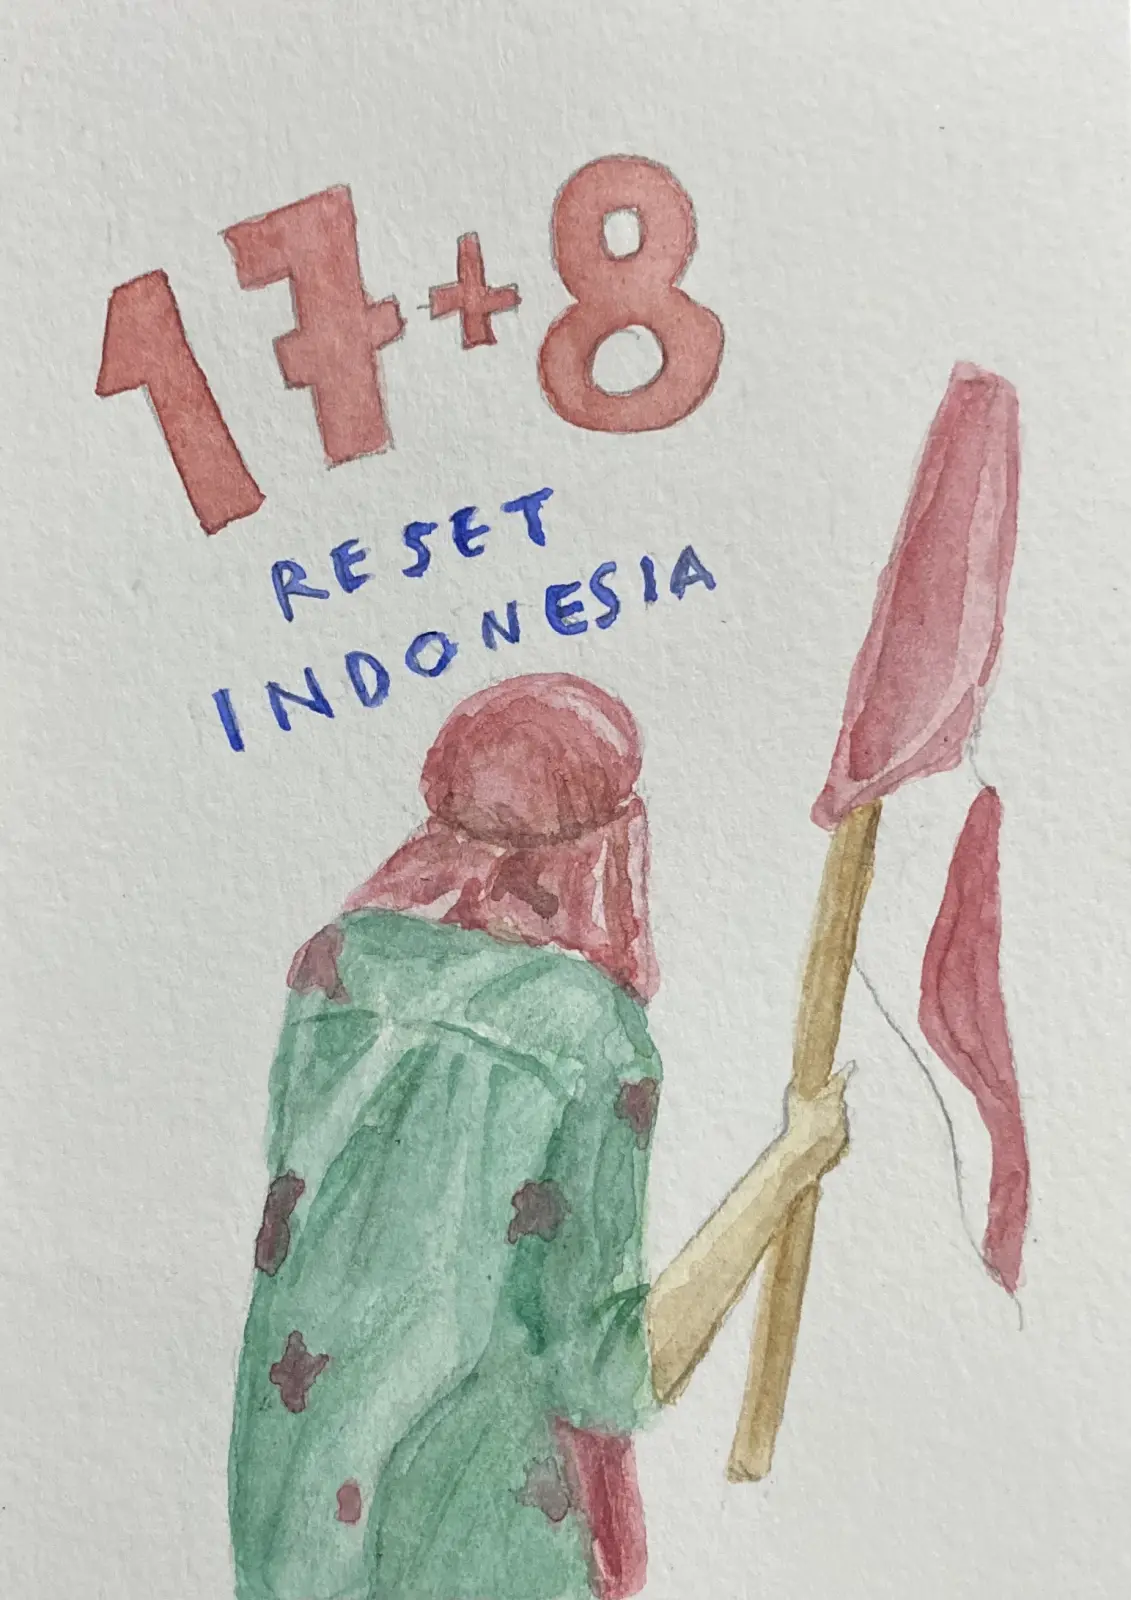 17+8
RESET
INDONESIA